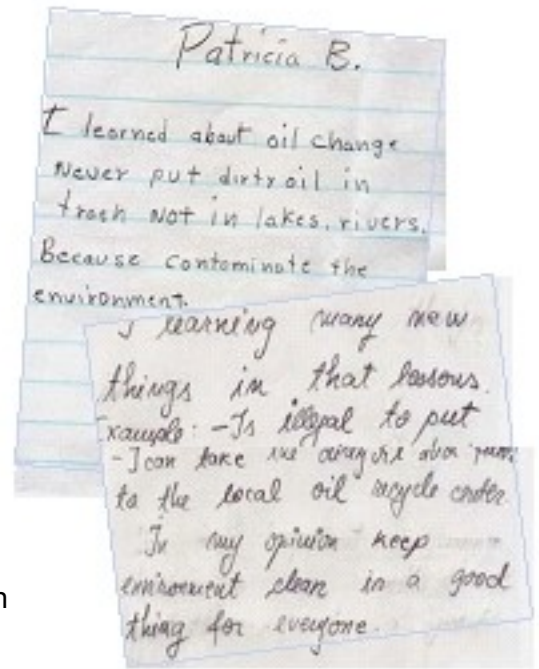 Patricia B.
I learned about oil change
Never put dirty oil in
trash Not in lakes, rivers.
Because contaminate the
environment.
I learning many new
things in that lessons.
Example: -Is illegal to put
-I can take
to the local oil recycle center
In my opinion keep
environment clean is a good
thing for everyone.
n